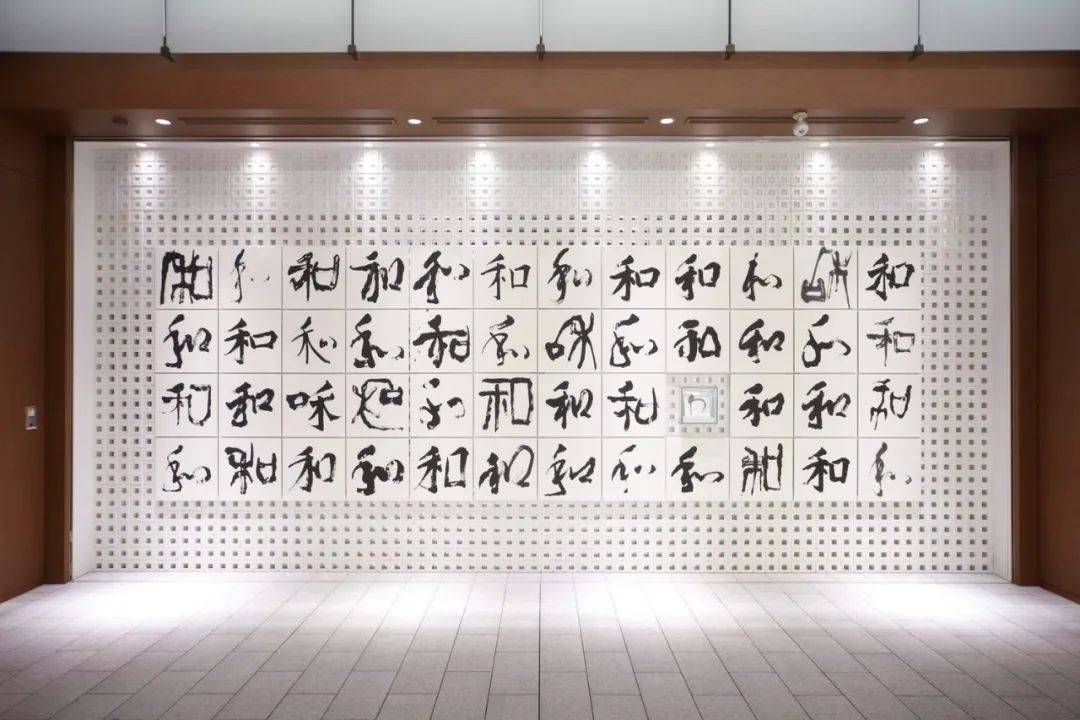 和和和和和和和和和和咊和
和和和和和和咊和和和和和
和和咊和和和和和和和和
和和和和和和和和和和和和